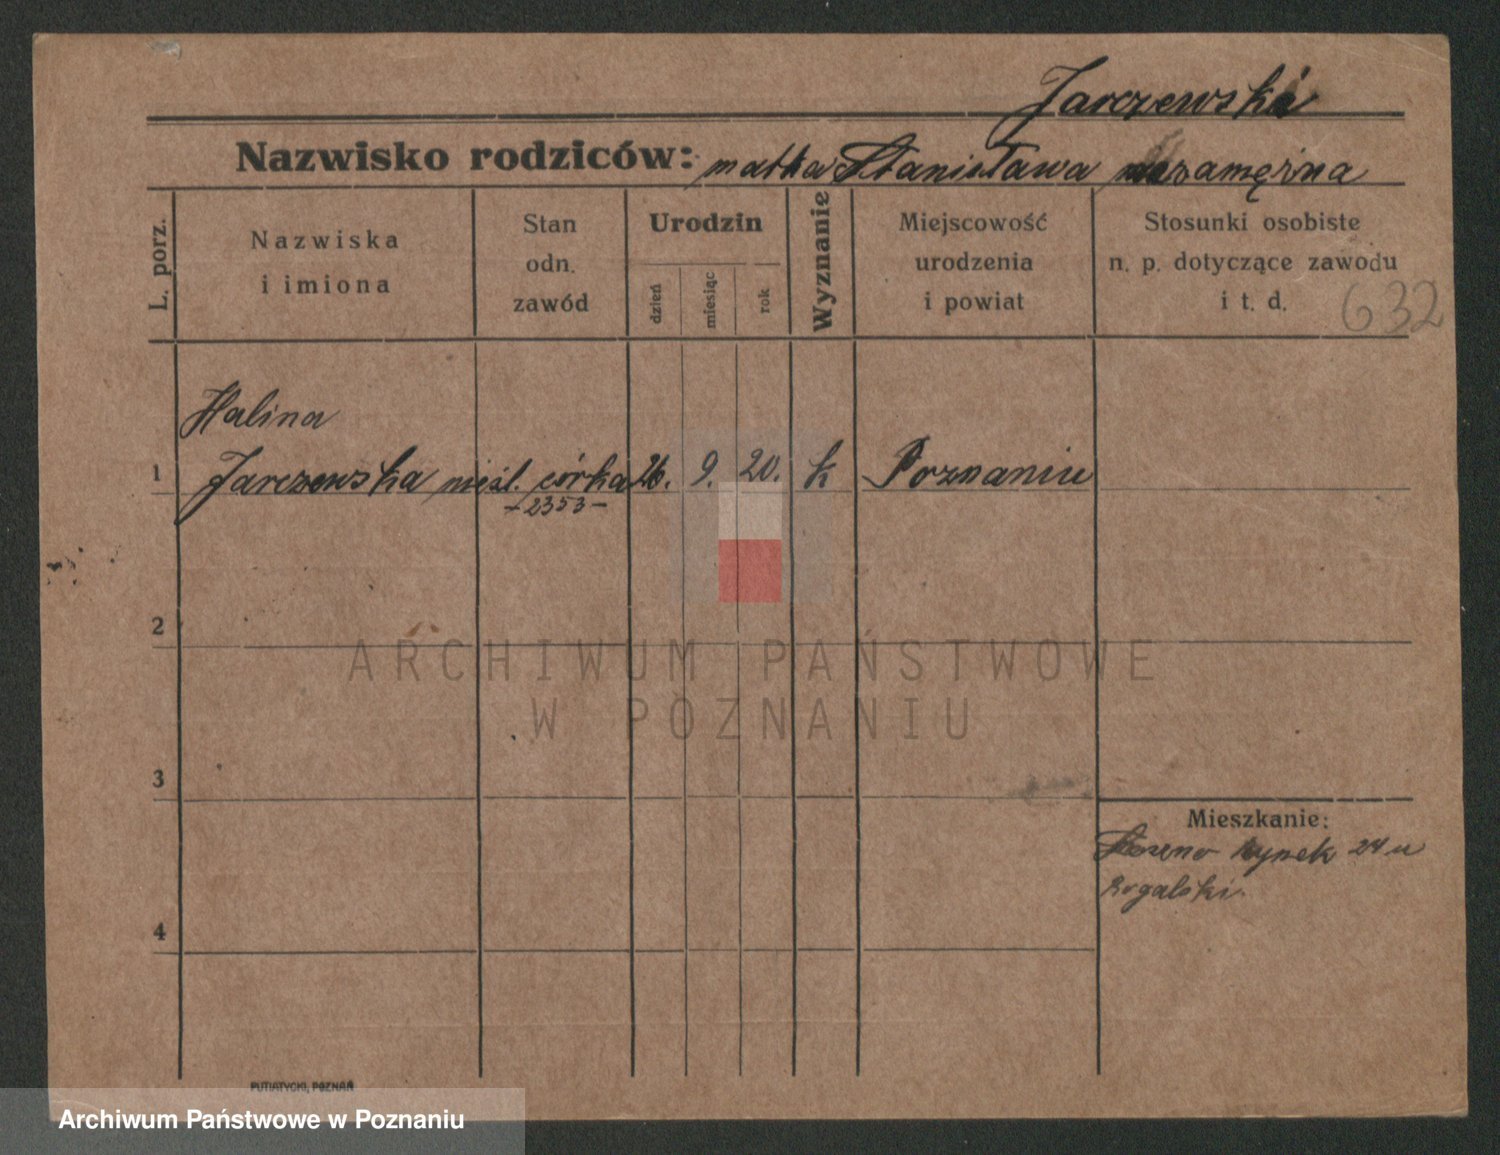 Jarczewska
Nazwisko rodziców: matka Stanisława niezamężna
L. porz.
Nazwiska
i imiona
Stan
odn.
zawód
Urodzin
dzień
miesiąc
rok
Wyznanie
Miejscowość
urodzenia
i powiat
Stosunki osobiste
n. p. dotyczące zawodu
i t. d.
632
Halina
1 Jarczewska nieśl. córka 26. 9. 20. k Poznaniu
-2353-
2
3
4
Mieszkanie:
rynek 24 u
Rogalski.
PUTIATYCKI, POZNAŃ
ARCHIWUM PAŃSTWOWE
W POZNANIU
Archiwum Państwowe w Poznaniu